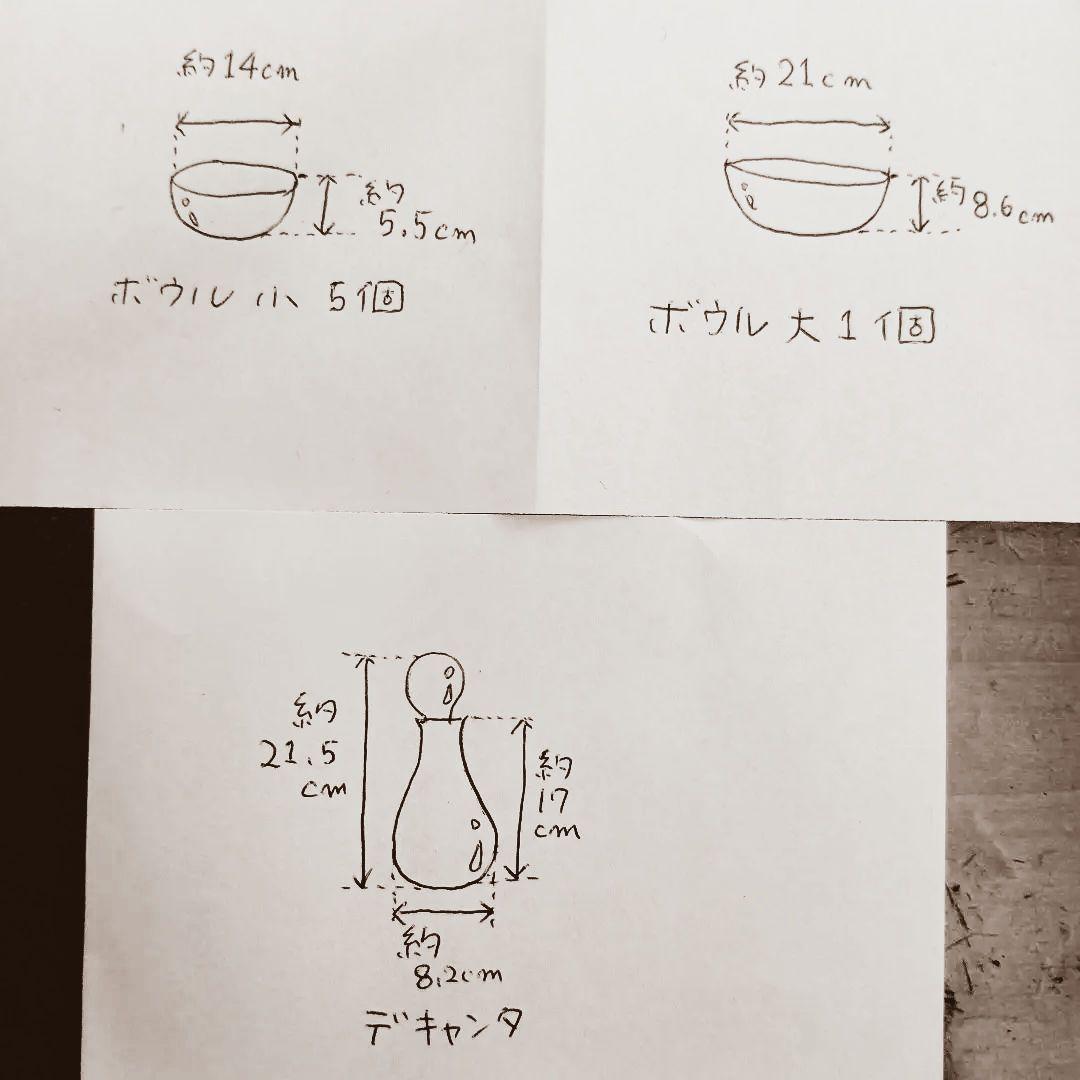 約14cm
約
5.5cm
ボウル 小 5個
約21cm
約8.6cm
ボウル 大 1個
約
21.5
cm
約
17
cm
約
8.2cm
デキャンタ